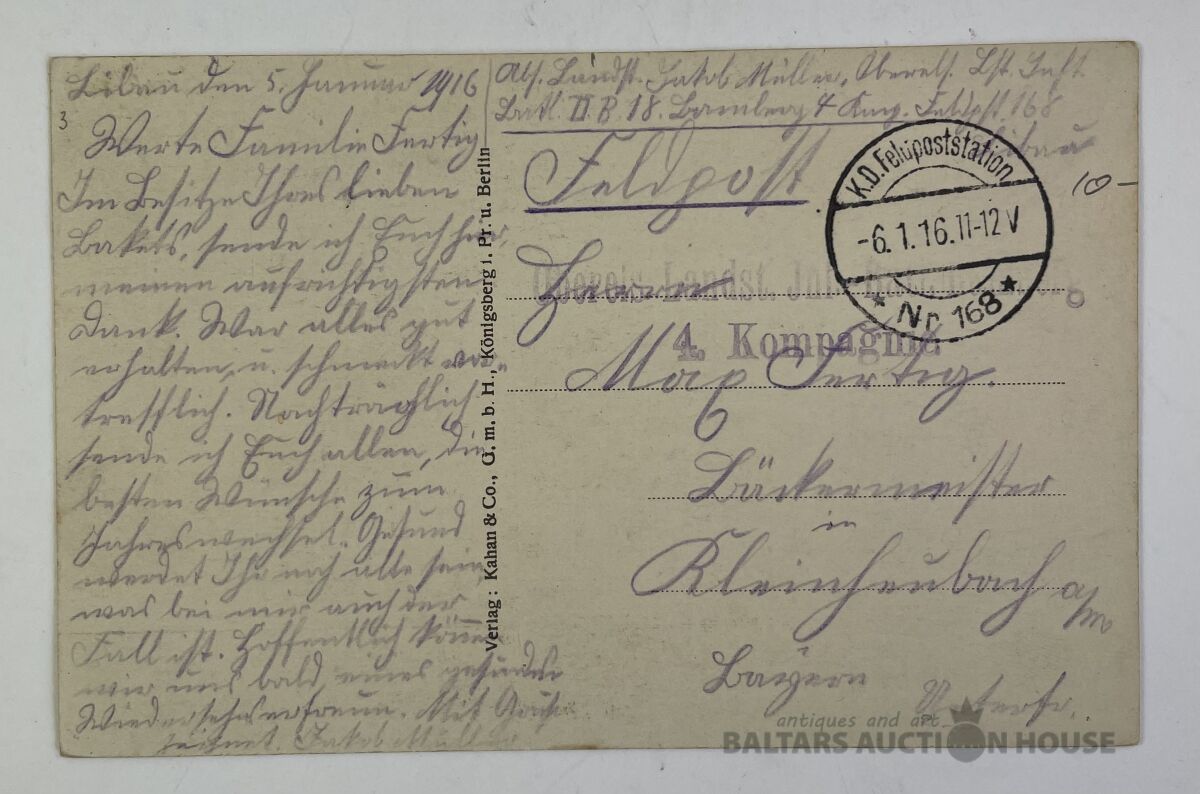 Libau den 5. Januar 1916
3
Werte Familie Fertig
Im Besitze Ihres lieben
Pakets, sende ich Euch hier,
meinen aufrichtigsten
Dank. War alles gut
erhalten, u. schmeckt vor-
trefflich. Nachträglich
sende ich Euch allen, die
besten Wünsche zum
Jahreswechsel. Gesund
werdet Ihr noch alle sein,
was bei mir auch der
Fall ist. Hoffentlich können
wir uns bald, eines gesunden
Wiedersehens erfreun. Mit Gruß
zeichnet Jakob Müller
Verlag: Kahan & Co., G. m. b. H., Königsberg i. Pr. u. Berlin
Abs. Landst. Jakob Müller, Oberels. Lst. Inft.
Batl. II B. 18. Bamberg 4 Komp. Feldpst. 168
Libau
Feldpost
K.D. Feldpoststation
-6.1.16.11-12 V
* Nr 168 *
10-
Herrn
Landst. Inf.
4. Kompagnie
Max Fertig.
Bäckermeister
in
Kleinheubach a/M
Bayern Unterfr.
antiques and art
BALTARS AUCTION HOUSE